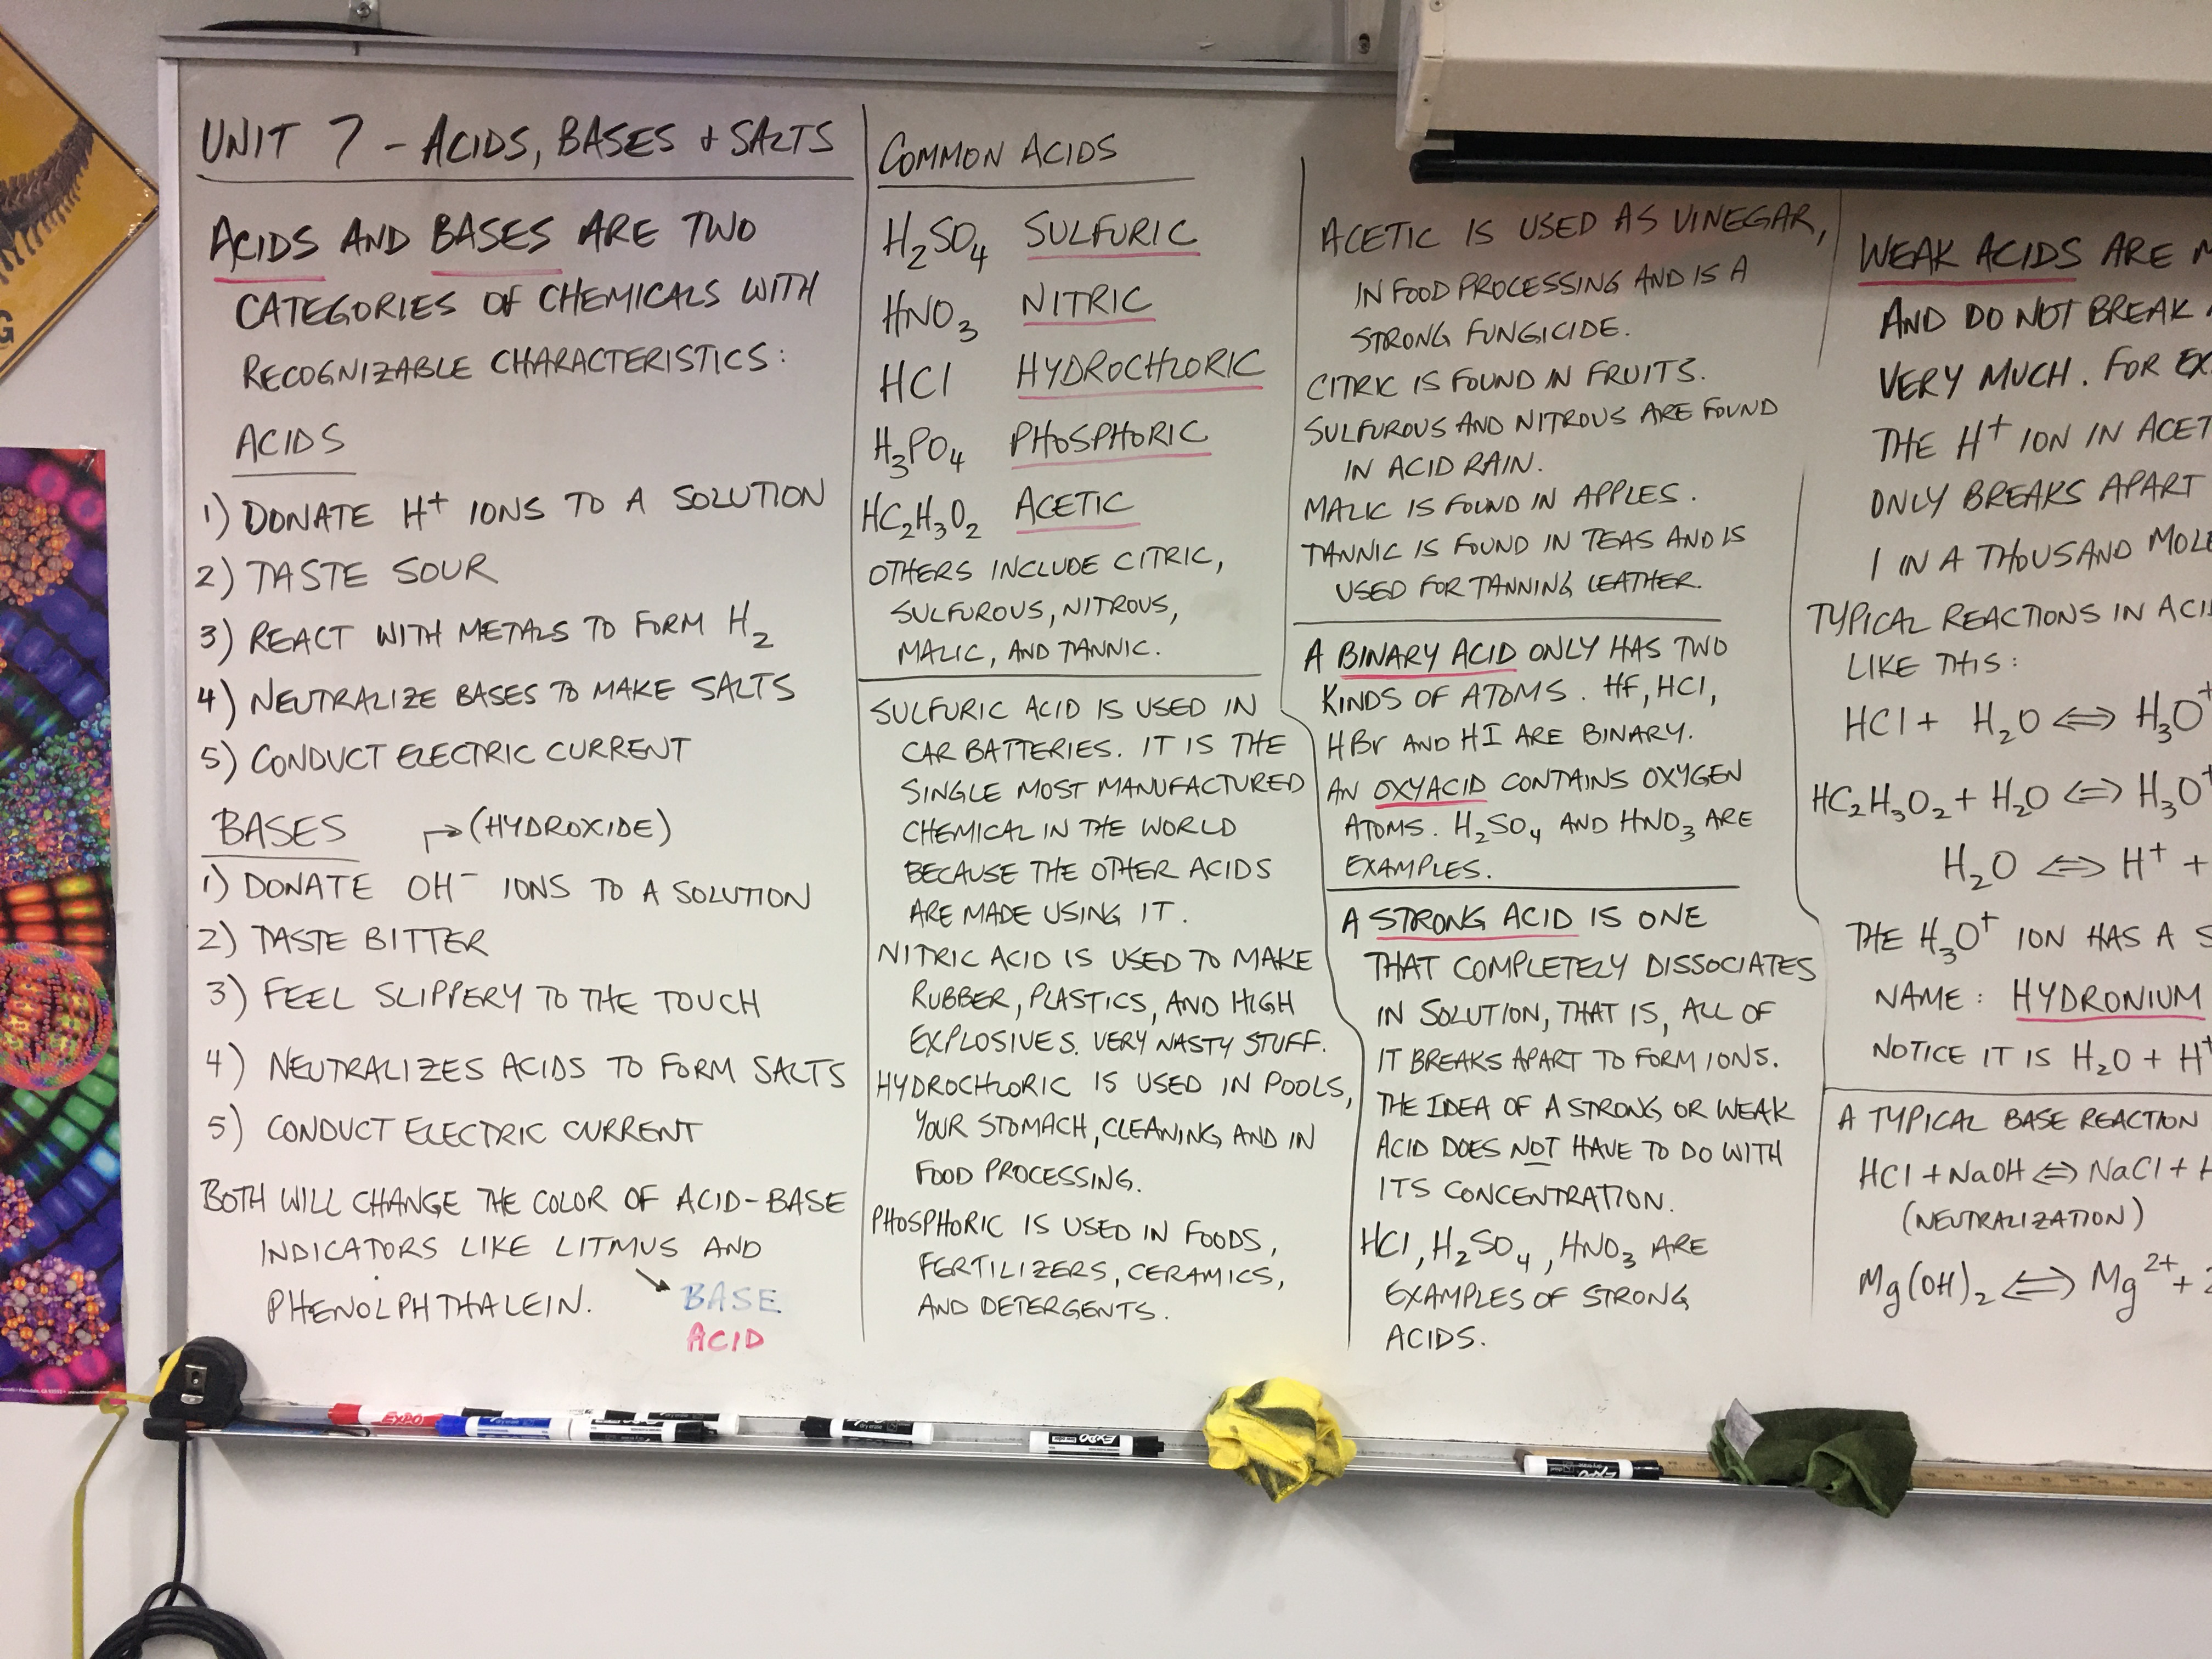 UNIT 7 - ACIDS, BASES + SALTS
ACIDS AND BASES ARE TWO
CATEGORIES OF CHEMICALS WITH
RECOGNIZABLE CHARACTERISTICS:
ACIDS
1) DONATE H⁺ IONS TO A SOLUTION
2) TASTE SOUR
3) REACT WITH METALS TO FORM H₂
4) NEUTRALIZE BASES TO MAKE SALTS
5) CONDUCT ELECTRIC CURRENT
BASES → (HYDROXIDE)
1) DONATE OH⁻ IONS TO A SOLUTION
2) TASTE BITTER
3) FEEL SLIPPERY TO THE TOUCH
4) NEUTRALIZES ACIDS TO FORM SALTS
5) CONDUCT ELECTRIC CURRENT
BOTH WILL CHANGE THE COLOR OF ACID-BASE
INDICATORS LIKE LITMUS AND
PHENOLPHTHALEIN. → BASE
ACID
COMMON ACIDS
H₂SO₄ SULFURIC
HNO₃ NITRIC
HCl HYDROCHLORIC
H₃PO₄ PHOSPHORIC
HC₂H₃O₂ ACETIC
OTHERS INCLUDE CITRIC,
SULFUROUS, NITROUS,
MALIC, AND TANNIC.
SULFURIC ACID IS USED IN
CAR BATTERIES. IT IS THE
SINGLE MOST MANUFACTURED
CHEMICAL IN THE WORLD
BECAUSE THE OTHER ACIDS
ARE MADE USING IT.
NITRIC ACID IS USED TO MAKE
RUBBER, PLASTICS, AND HIGH
EXPLOSIVES. VERY NASTY STUFF.
HYDROCHLORIC IS USED IN POOLS,
YOUR STOMACH, CLEANING, AND IN
FOOD PROCESSING.
PHOSPHORIC IS USED IN FOODS,
FERTILIZERS, CERAMICS,
AND DETERGENTS.
ACETIC IS USED AS VINEGAR,
IN FOOD PROCESSING AND IS A
STRONG FUNGICIDE.
CITRIC IS FOUND IN FRUITS.
SULFUROUS AND NITROUS ARE FOUND
IN ACID RAIN.
MALIC IS FOUND IN APPLES.
TANNIC IS FOUND IN TEAS AND IS
USED FOR TANNING LEATHER.
A BINARY ACID ONLY HAS TWO
KINDS OF ATOMS. HF, HCl,
HBr AND HI ARE BINARY.
AN OXYACID CONTAINS OXYGEN
ATOMS. H₂SO₄ AND HNO₃ ARE
EXAMPLES.
A STRONG ACID IS ONE
THAT COMPLETELY DISSOCIATES
IN SOLUTION, THAT IS, ALL OF
IT BREAKS APART TO FORM IONS.
THE IDEA OF A STRONG OR WEAK
ACID DOES NOT HAVE TO DO WITH
ITS CONCENTRATION.
HCl, H₂SO₄, HNO₃ ARE
EXAMPLES OF STRONG
ACIDS.
WEAK ACIDS ARE
AND DO NOT BREAK
VERY MUCH. FOR EX
THE H⁺ ION IN ACET
ONLY BREAKS APART
1 IN A THOUSAND MOLE
TYPICAL REACTIONS IN ACI
LIKE THIS:
HCl + H₂O ⇔ H₃O⁺
HC₂H₃O₂ + H₂O ⇔ H₃O⁺
H₂O ⇔ H⁺ +
THE H₃O⁺ ION HAS A S
NAME: HYDRONIUM
NOTICE IT IS H₂O + H⁺
A TYPICAL BASE REACTION
HCl + NaOH ⇔ NaCl + H
(NEUTRALIZATION)
Mg(OH)₂ ⇔ Mg²⁺ + 2
G
EXPO
EXPO
EXPO